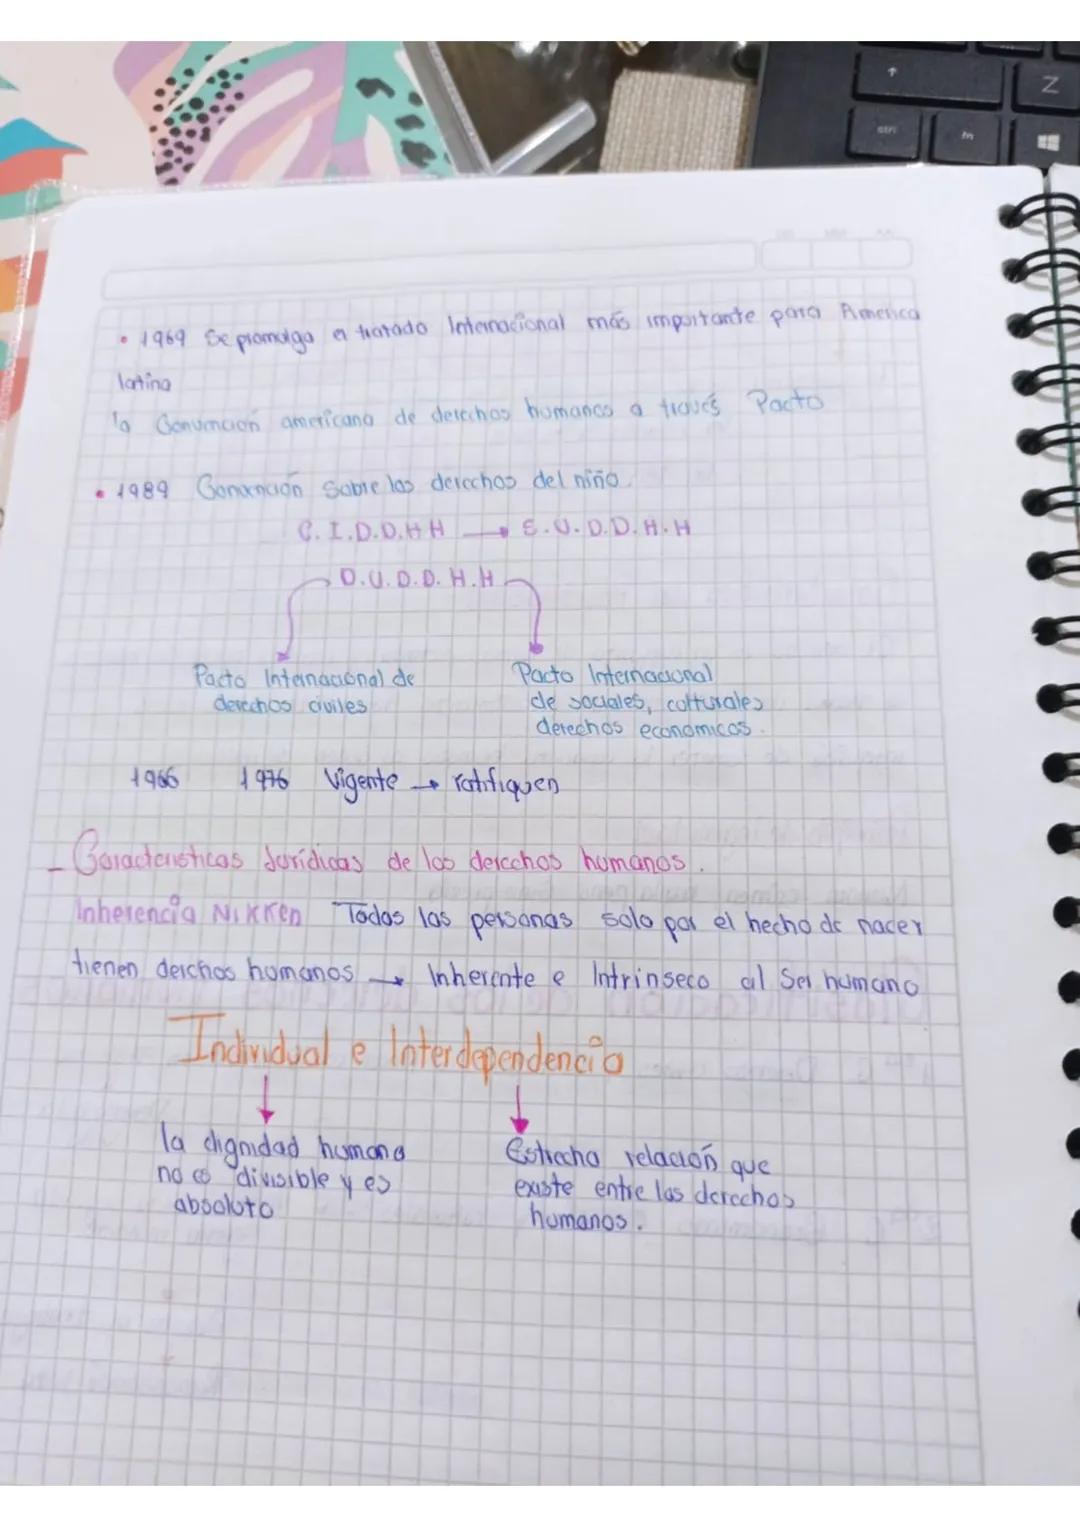 • 1969 Se promulga el tratado Internacional más importante para America
latina
la Convención americana de derechos humanos a través Pacto
• 1989 Convención Sobre los derechos del niño.
C.I.D.D.H H → E.U.D.D.H.H
D.U.D.D.H.H
Pacto Internacional de
derechos civiles
Pacto Internacional
de sociales, culturales
derechos economicos.
1966 1976 Vigente → ratifiquen
- Caracteristicas Jurídicas de los derechos humanos.
Inherencia NIKKEN Todas las personas solo por el hecho de nacer
tienen derchos humanos → Inherente e Intrinseco al Ser humano
Individual e Interdependencia
la dignidad humana
no es divisible y es
absoluto
Estrecha relación que
existe entre los derechos
humanos.
ctrl
fn
Z